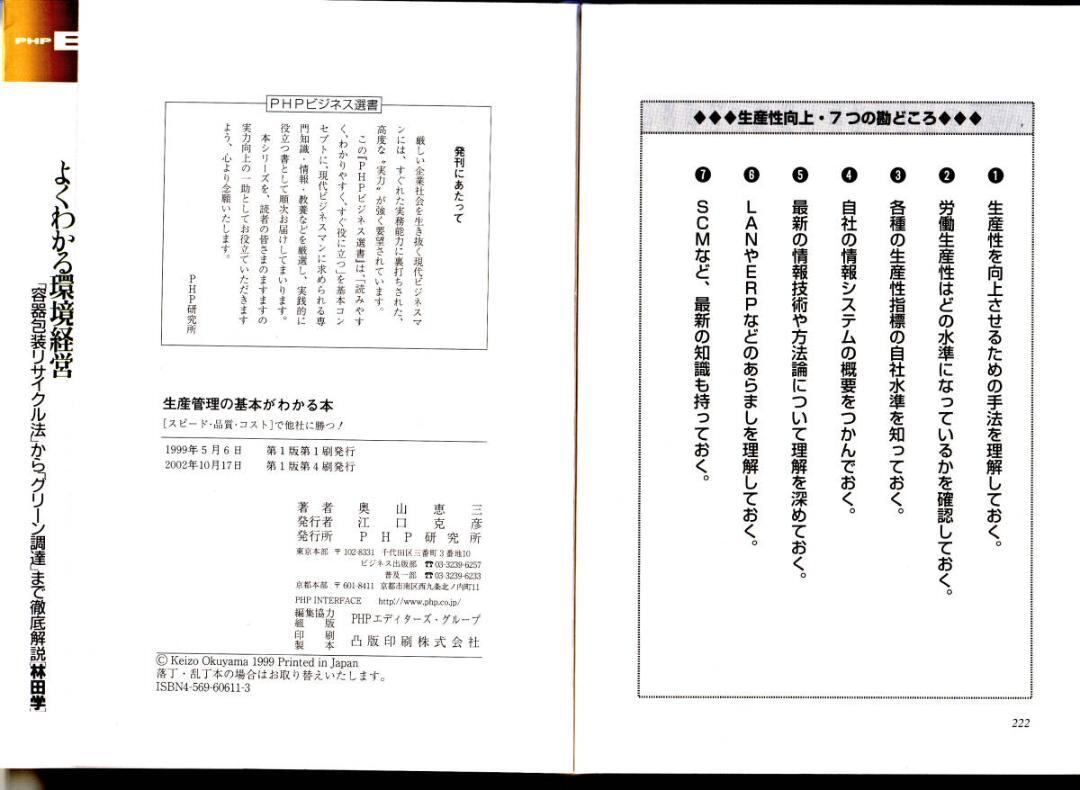 ◆◆◆生産性向上・7つの勘どころ◆◆◆
❶ 生産性を向上させるための手法を理解しておく。
❷ 労働生産性はどの水準になっているかを確認しておく。
❸ 各種の生産性指標の自社水準を知っておく。
❹ 自社の情報システムの概要をつかんでおく。
❺ 最新の情報技術や方法論について理解を深めておく。
❻ LANやERPなどのあらましを理解しておく。
❼ SCMなど、最新の知識も持っておく。
222
PHPビジネス選書
発刊にあたって
厳しい企業社会を生き抜く現代ビジネスマ
ンには、すぐれた実務能力に裏打ちされた、
高度な“実力”が強く要望されています。
この『PHPビジネス選書』は、「読みやす
く、わかりやすく、すぐ役に立つ」を基本コン
セプトに、現代ビジネスマンに求められる専
門知識・情報・教養などを厳選し、実践的に
役立つ書として順次お届けしてまいります。
本シリーズを、読者の皆さまのますますの
実力向上の一助としてお役立ていただきます
よう、心より念願いたします。
PHP研究所
生産管理の基本がわかる本
[スピード・品質・コスト]で他社に勝つ!
1999年5月6日 第1版第1刷発行
2002年10月17日 第1版第4刷発行
著者 奥山恵三
発行者 江口克彦
発行所 PHP研究所
東京本部 〒102-8331 千代田区三番町3番地10
ビジネス出版部 ☎03-3239-6257
普及一部 ☎03-3239-6233
京都本部 〒601-8411 京都市南区西九条北ノ内町11
PHP INTERFACE http://www.php.co.jp/
編集協力
組版 PHPエディターズ・グループ
印刷
製本 凸版印刷株式会社
© Keizo Okuyama 1999 Printed in Japan
落丁・乱丁本の場合はお取り替えいたします。
ISBN4-569-60611-3
PHP B
よくわかる環境経営
「容器包装リサイクル法」から「グリーン調達」まで徹底解説 [林田学]